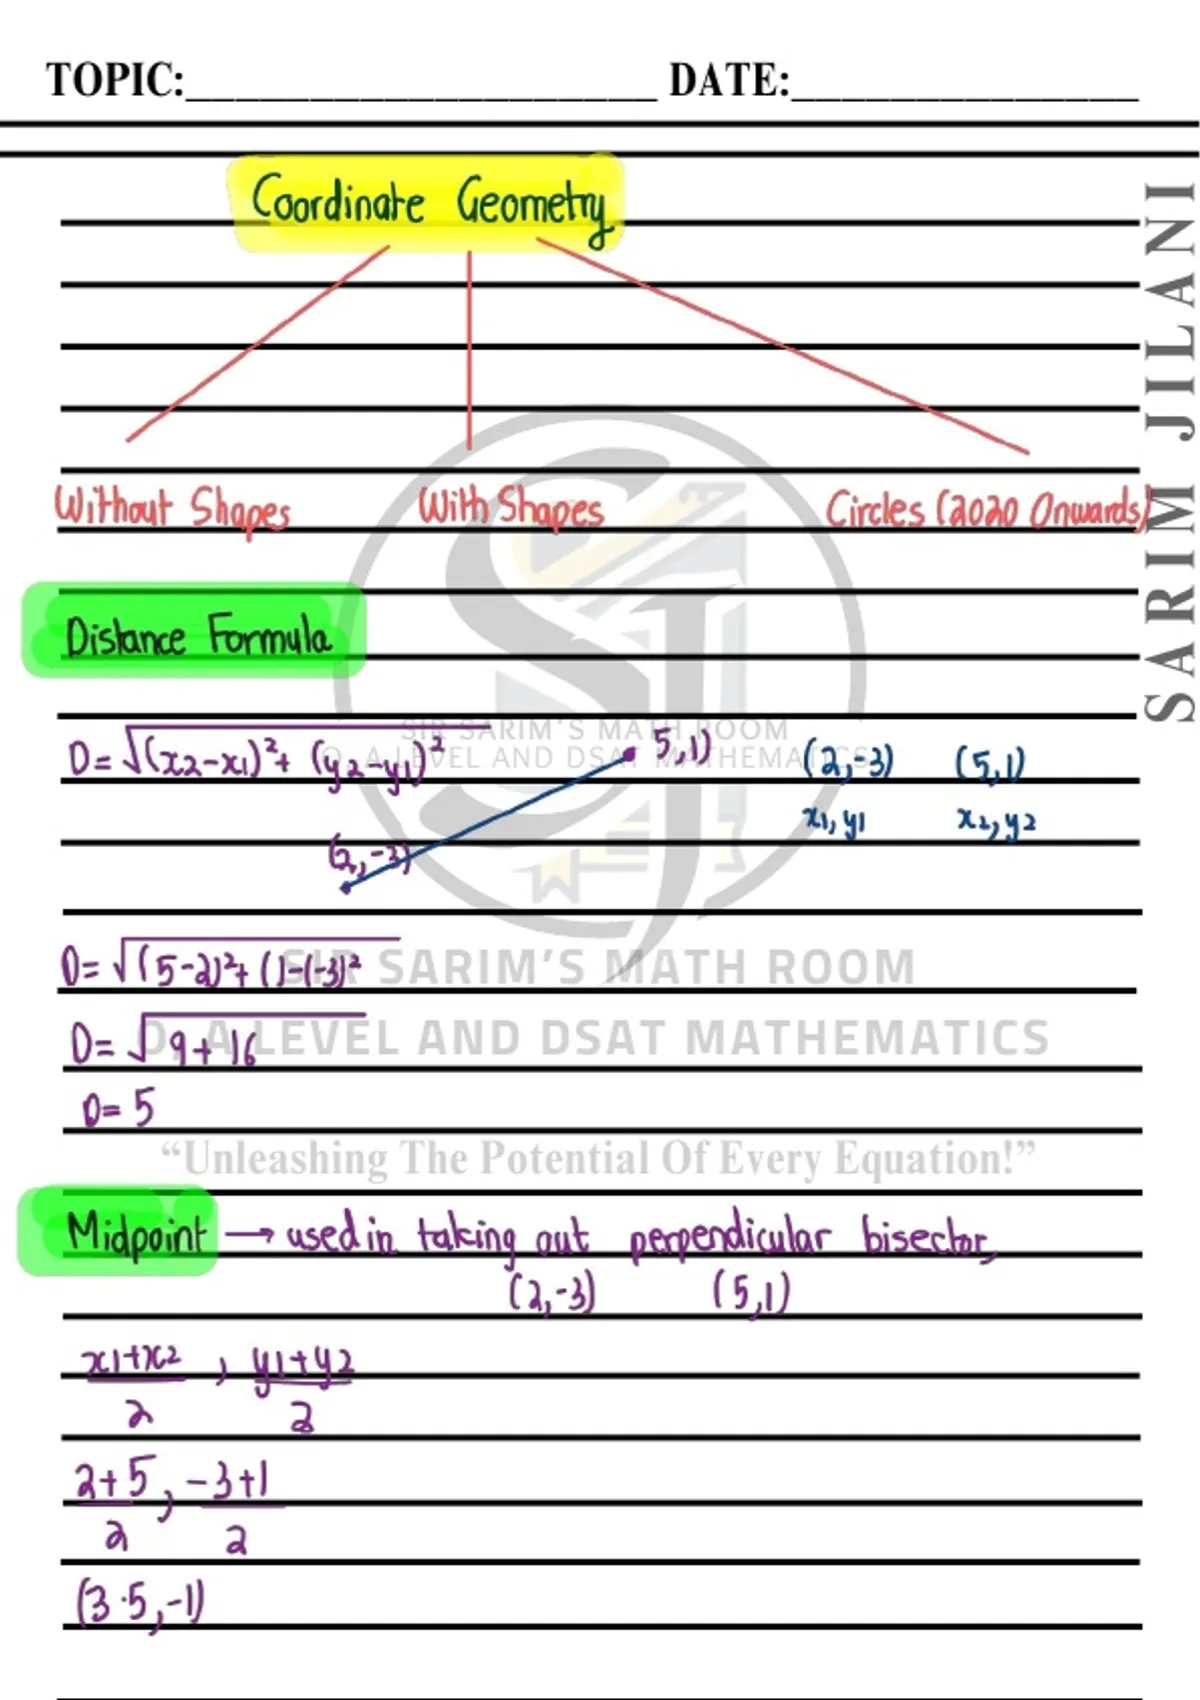 TOPIC:____________________ DATE:_______________
Coordinate Geometry
SARIM JILANI
Without Shapes With Shapes Circles (2020 Onwards)
Distance Formula
SIR SARIM'S MATH ROOM
O, A LEVEL AND DSAT MATHEMATICS
D= √(x2-x1)²+ (y2-y1)² 5,1) (2,-3) (5,1)
x1,y1 x2,y2
(2,-3)
D= √(5-2)²+ (1-(-3)²
SIR SARIM'S MATH ROOM
D= √9+16
O, A LEVEL AND DSAT MATHEMATICS
D= 5
“Unleashing The Potential Of Every Equation!”
Midpoint → used in taking out perpendicular bisector,
(2,-3) (5,1)
x1+x2 , y1+y2
2 2
2+5 , -3+1
2 2
(3.5,-1)